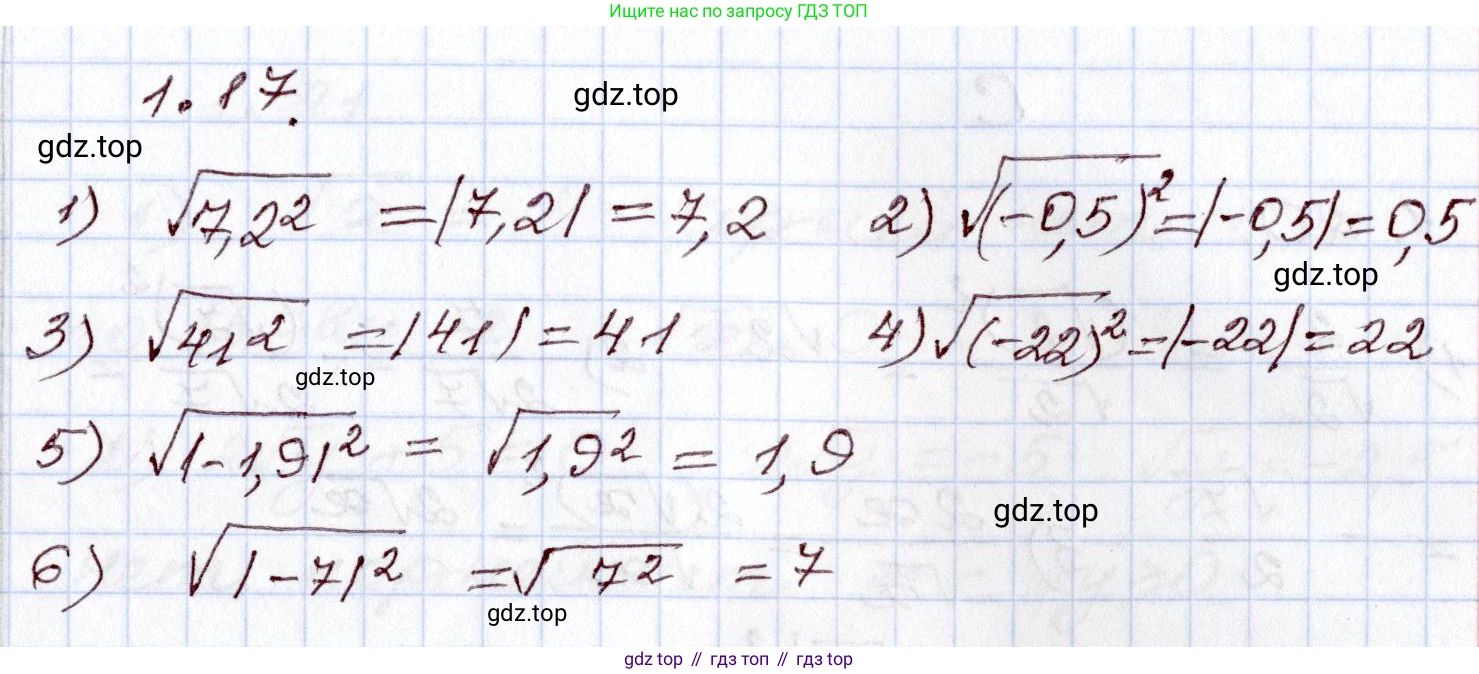 Ищите нас по запросу ГДЗ ТОП
1.87.
gdz.top
gdz.top
1) √7,2² = |7,2| = 7,2 2) √(-0,5)² = |-0,5| = 0,5
gdz.top
3) √41² = |41| = 41 4) √(-22)² = |-22| = 22
gdz.top
5) √|-1,9|² = √1,9² = 1,9
gdz.top
6) √|-7|² = √7² = 7
gdz.top
gdz top // гдз топ // гдз top